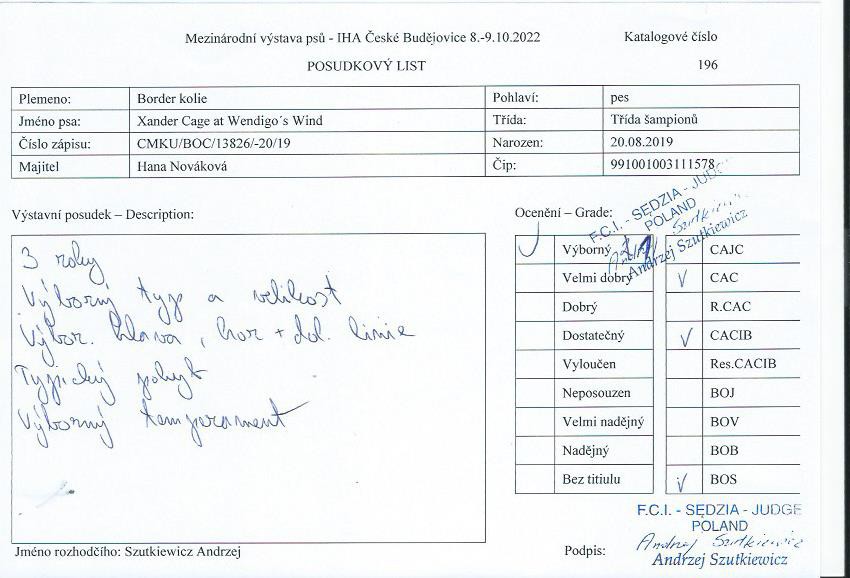 Mezinárodní výstava psů - IHA České Budějovice 8.-9.10.2022 Katalogové číslo
POSUDKOVÝ LIST 196
Plemeno: Border kolie Pohlaví: pes
Jméno psa: Xander Cage at Wendigo´s Wind Třída: Třída šampionů
Číslo zápisu: CMKU/BOC/13826/-20/19 Narozen: 20.08.2019
Majitel Hana Nováková Čip: 991001003111578
Výstavní posudek – Description: Ocenění – Grade:
F.C.I. - SĘDZIA - JUDGE
POLAND
Andrzej Szutkiewicz
Andrzej Szutkiewicz
3 roky
Výborný typ a velikost
Výbor. hlava, hor + dol. linie
Typický pohyb
Výborný temperament
Výborný 1 CAJC
Velmi dobrý CAC
Dobrý R.CAC
Dostatečný CACIB
Vyloučen Res.CACIB
Neposouzen BOJ
Velmi nadějný BOV
Nadějný BOB
Bez titiulu BOS
F.C.I. - SĘDZIA - JUDGE
POLAND
Jméno rozhodčího: Szutkiewicz Andrzej Podpis: Andrzej Szutkiewicz
Andrzej Szutkiewicz